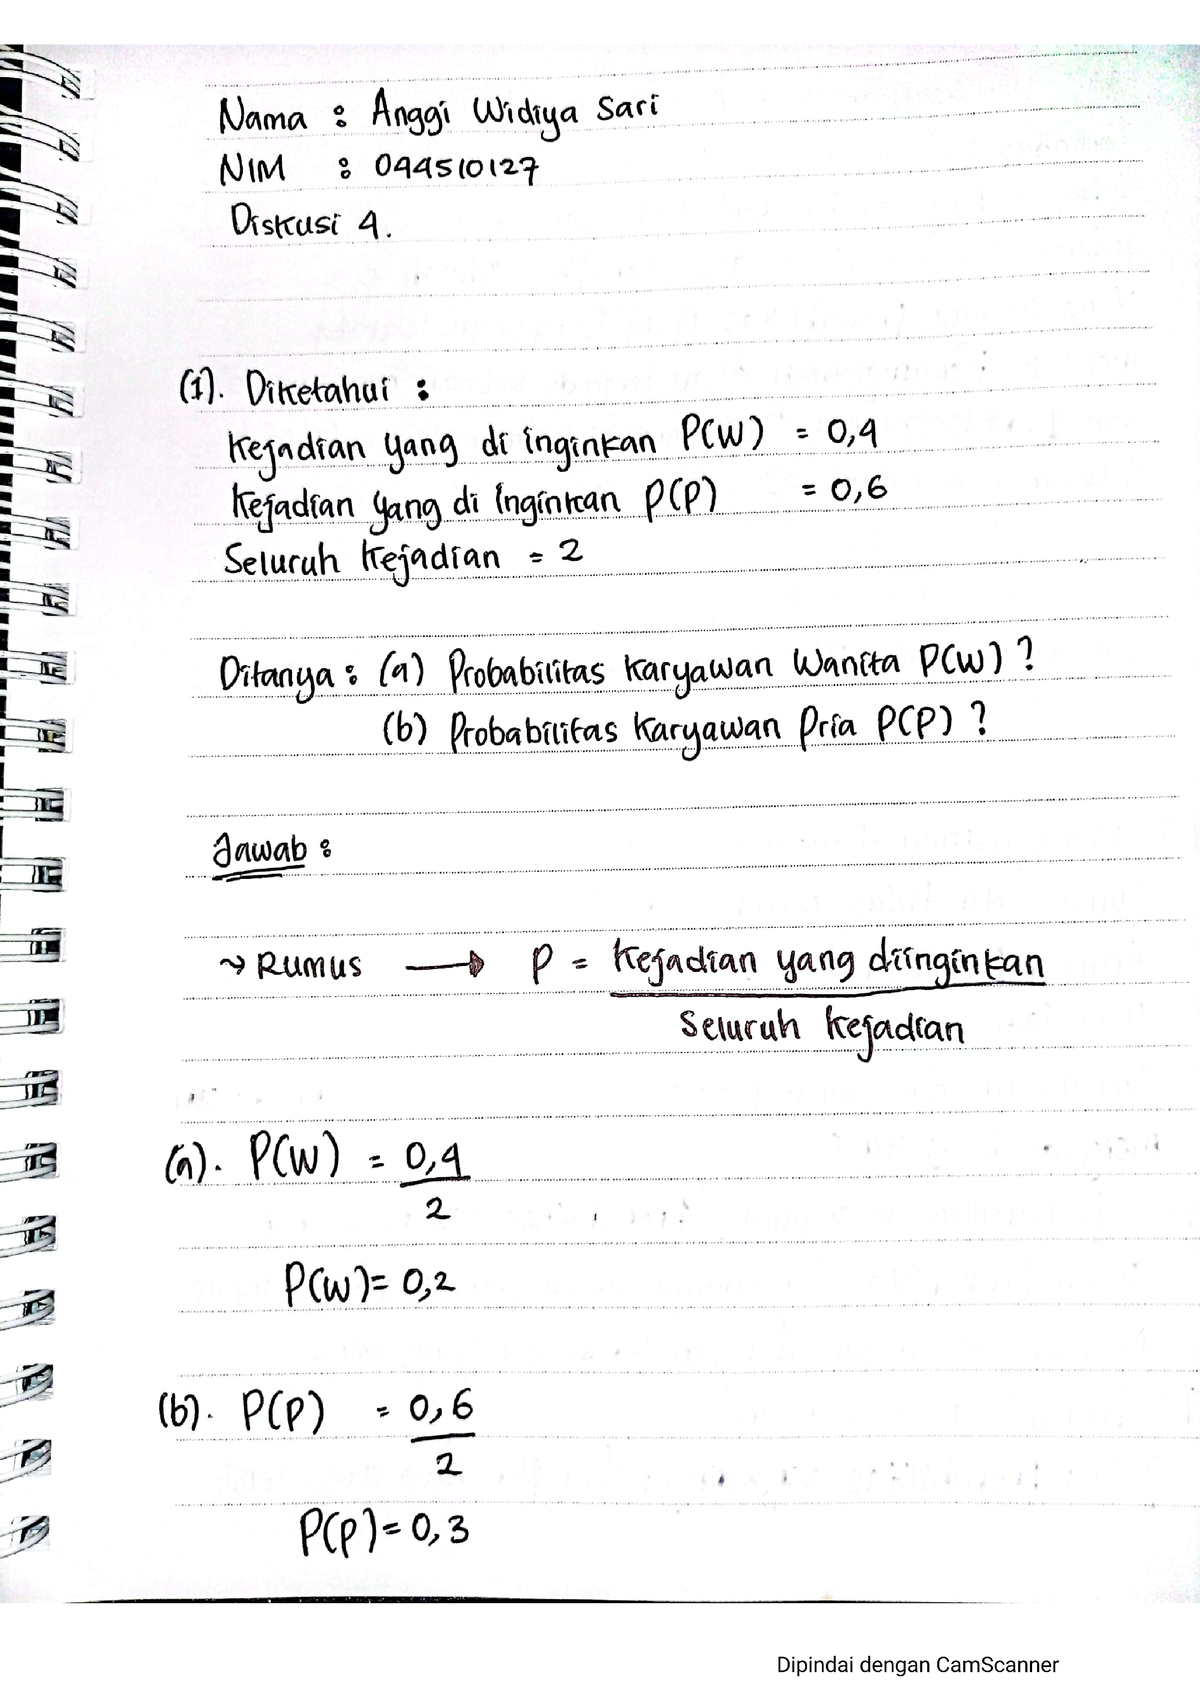 Nama : Anggi Widiya Sari
NIM : 044510127
Diskusi 4.
(1). Diketahui :
Kejadian yang di inginkan P(W) = 0,4
Kejadian yang di inginkan P(P) = 0,6
Seluruh kejadian = 2
Ditanya : (a) Probabilitas karyawan Wanita P(W) ?
(b) Probabilitas Karyawan Pria P(P) ?
Jawab :
~> RUMUS → P = Kejadian yang diinginkan
Seluruh kejadian
(a). P(W) = 0,4
2
P(W) = 0,2
(b). P(P) = 0,6
2
P(P) = 0,3
Dipindai dengan CamScanner